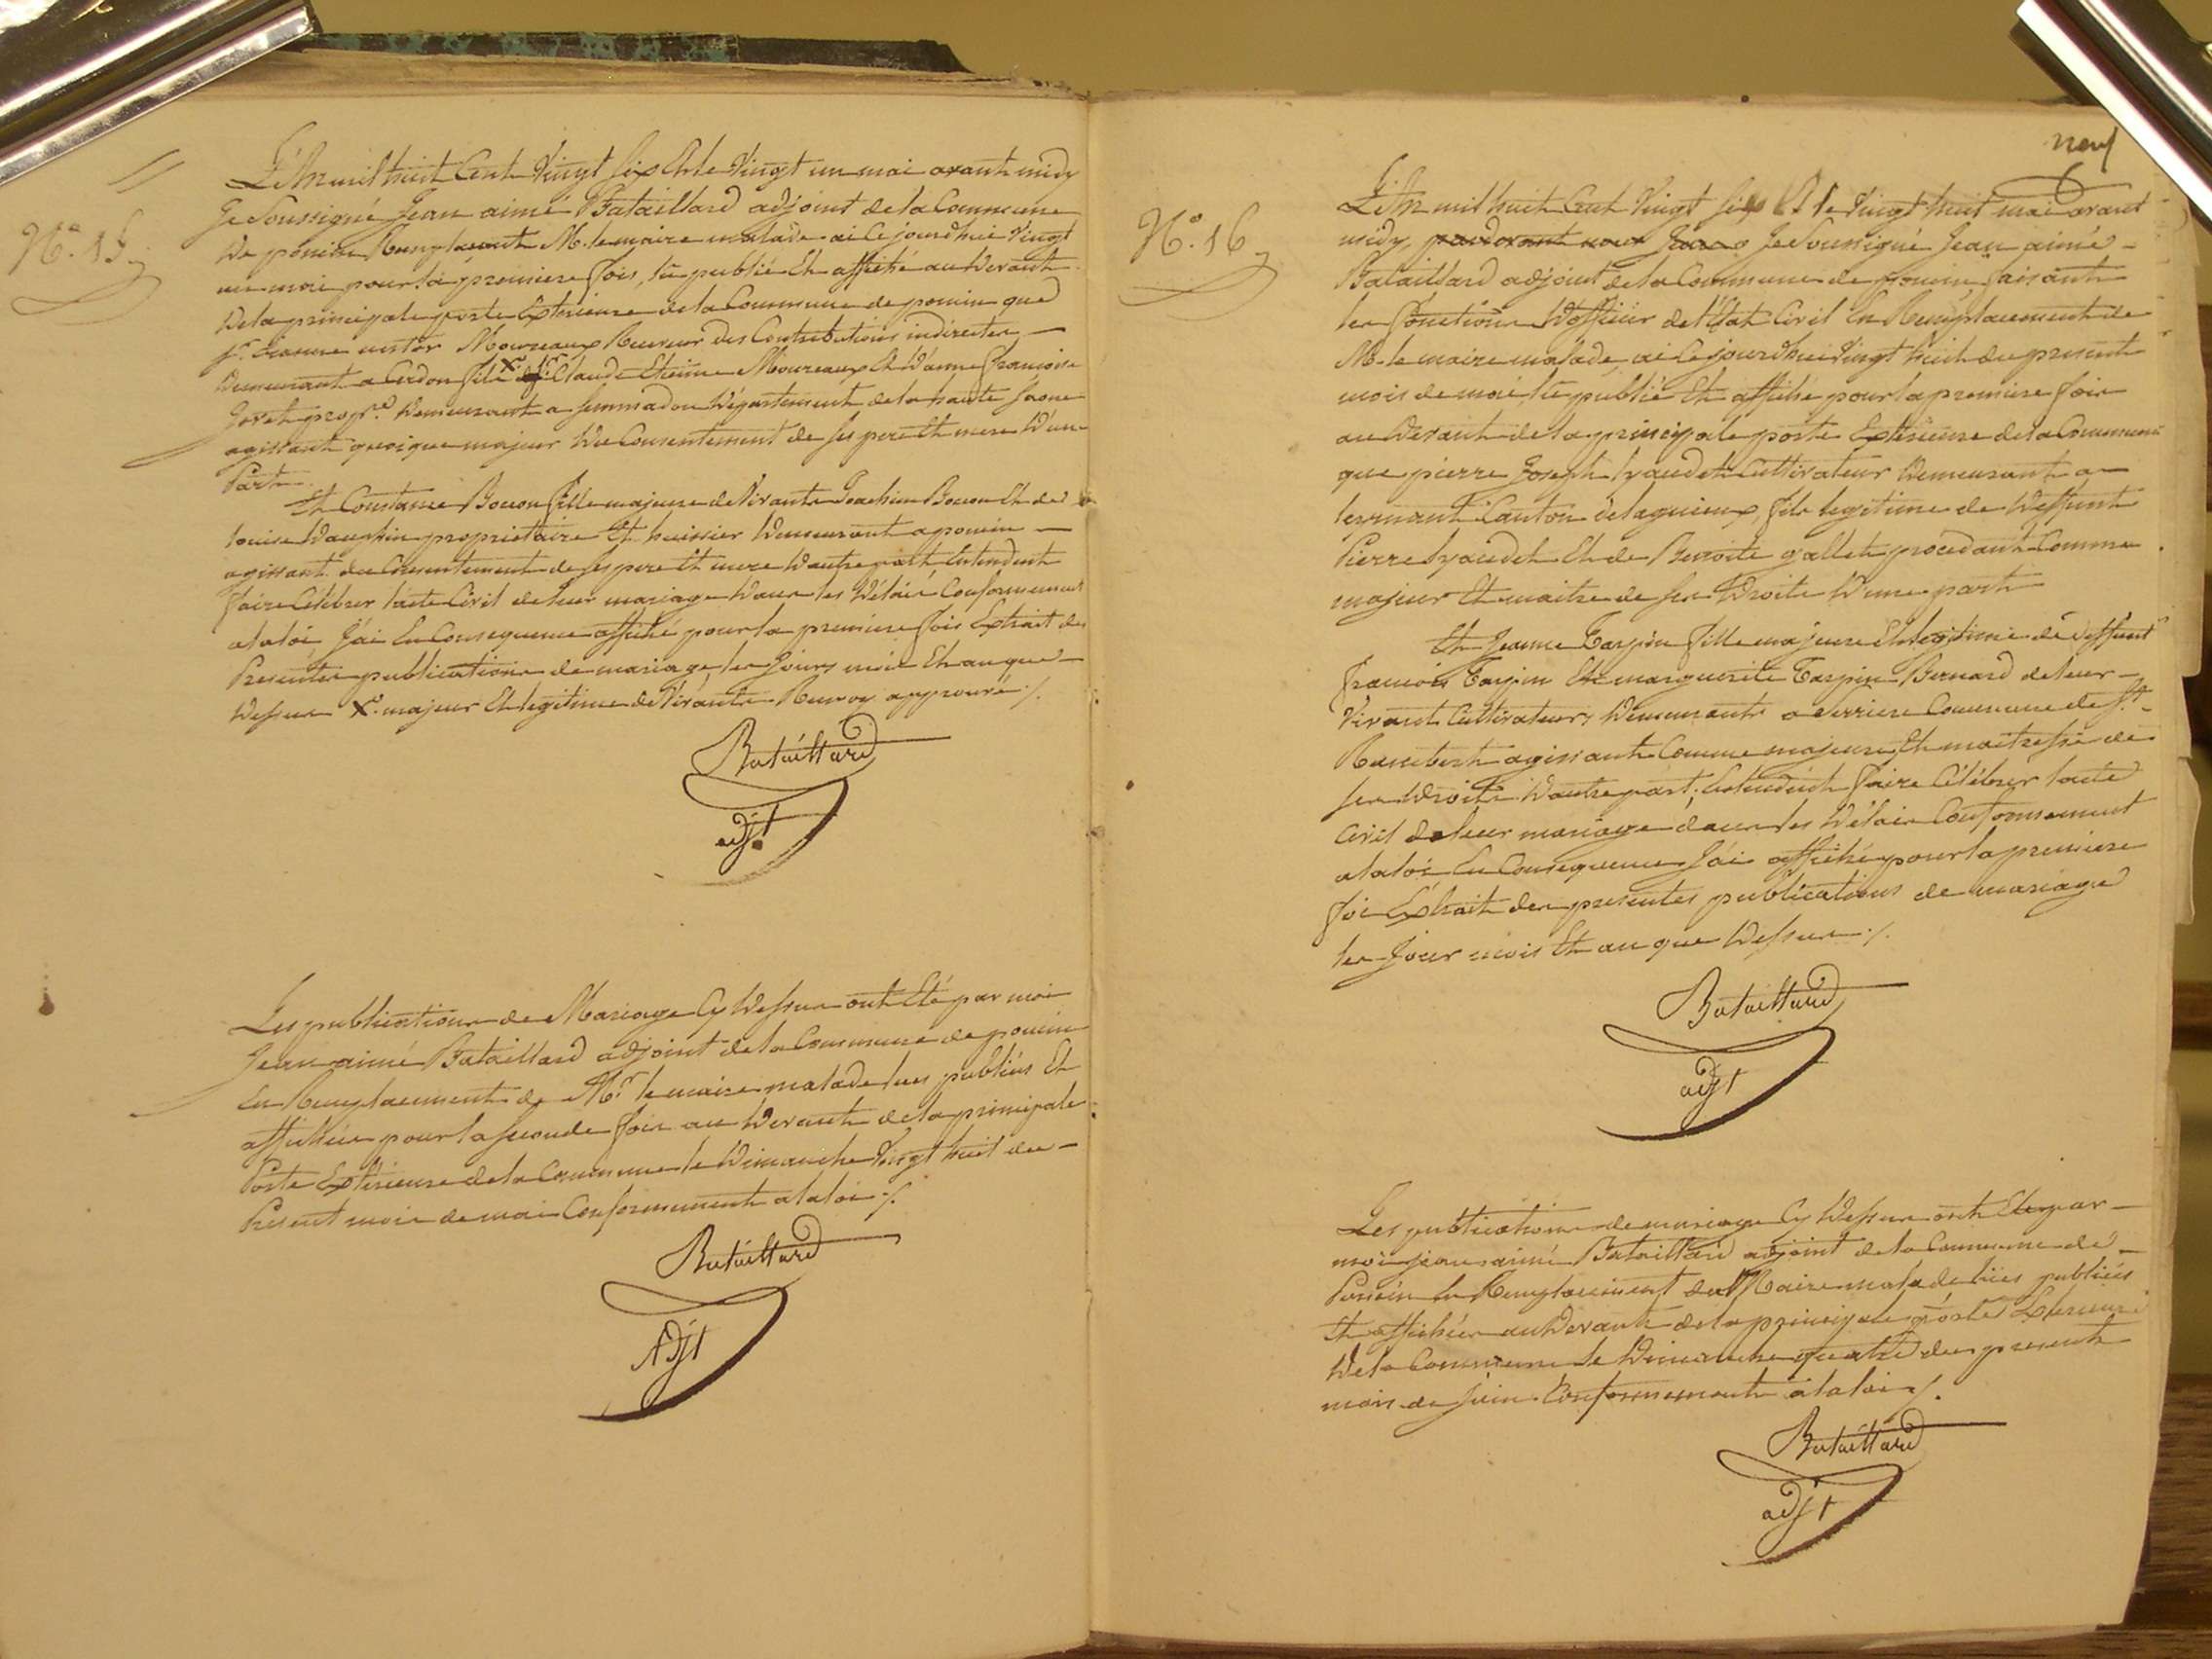 N.º 15
L'An mil huit Cent Vingt Six Et le Vingt un mai avant midy
Je Soussigné Jean aimé Bataillard adjoint de la Commune
De poncin Remplaçant M. le maire malade ai Ce jourdhui Vingt
un mai pour la premiere fois, lu publié Et affiché au Devant
De la principale porte Exterieure de la Commune de poncin que
Sr. nestor Moureaux Receveur des Contributions indirectes
Demeurant a Cerdon fils X Claude Etienne Moureaux Et D'anne françoise
propre. Demeurant a Département de la haute Saone
agissant quoique majeur Du Consentement de ses pere Et mere D'une
Part.
Et Constance Bocon fille majeure de Vivants Joachim Bocon Et de
louise Dauphin proprietaire Et huissier Demeurant a poncin
agissant du Consentement de ses pere Et mere D'autre part Entendent
faire Célébrer l'acte Civil de leur mariage Dans les Délais Conformement
a la loi, J'ai En Consequence affiché pour la premiere fois Extrait des
Presentes publications de mariage, les Jours, mois Et an que
Dessus X. majeur Et legitime de Vivants Renvoy approuvé ./.
Bataillard
adjt
Les publications de Mariage Cy Dessus ont Eté par moi
Jean aimé Bataillard adjoint de la Commune de poncin
En Remplacement de Mr le maire malade lues publiés Et
affichées pour la seconde fois au Devant de la principale
Porte Extérieure de la Commune le Dimanche Vingt huit du
Present mois de mai Conformement a la loi ./.
Bataillard
Adjt
neuf
N.º 16
L'An mil huit Cent Vingt Six Et le Vingt huit mai avant
midy, pardevant nous Jean Je Soussigné Jean aimé
Bataillard adjoint de la Commune de poncin faisant
les fonctions D'officier de l'Etat Civil En Remplacement de
M. le maire malade, ai Cejourdhui Vingt huit du present
mois de mai lu publié Et affiché pour la premiere fois
au Devant de la principale porte Extérieure de la Commune
que pierre Joseph Cultivateur Demeurant a
Canton de lagnieux, fils legitime de Deffunt
Pierre Et de Benoite gallet procedant Comme
majeur Et maitre de ses Droits D'une part
Et Jeanne Tarpin fille majeure Et legitime de deffunt
francois Tarpin Et marguerite Tarpin Bernard de leur
Vivant Cultivateurs Demeurants a Commune de St.
Rambert agissant Comme majeure Et maitresse de
ses Droits D'autre part. Entendent faire Célébrer l'acte
Civil de leur mariage dans les Délais Conformement
a la loi En Consequence J'ai affiché pour la premiere
fois Extrait des presentes publications de mariage
les Jour mois Et an que Dessus ./.
Bataillard
adjt
Les publications de mariage Cy Dessus ont Eté par
moi jean aimé Bataillard adjoint de la Commune de
Poncin En Remplacement du Maire malade lües publiées
Et affichées au Devant de la principale porte Extérieure
De la Commune le Dimanche quatre du present
mois de Juin Conformement à la loi ./.
Bataillard
adjt